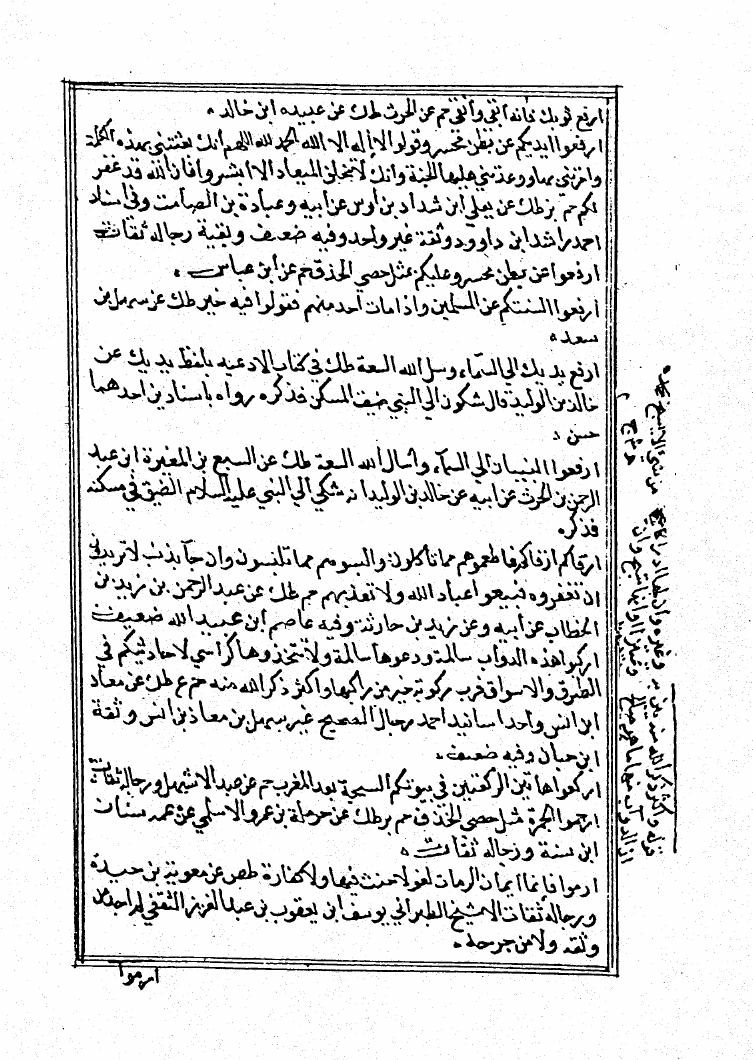 ارفع ثوبك فانه أنقى وأتقى حم عن الحرث طك عن عبيده ابن خالد
ارفعوا ايديكم عن بطن محسر وقولوا لا إله الا الله الحمد لله اللهم أنك بعثتني بهذه الكلمة
وامرتني بها ووعدتني عليها الجنة وأنك لا تخلف الميعاد الا ابشروا فان الله قد غفر
لكم حم بز طك عن يعلى ابن شداد بن أوس عن ابيه وعبادة بن الصامت وفي اسناد
احمد راشد ابن داوود وثقة غير واحد وفيه ضعيف وبقية رجاله ثقات
ارفعوا عن بطن محسر وعليكم بمثل حصي الخذف حم عن ابن عباس
ارفعوا السنتكم عن المسلمين واذا مات احد منهم فقولوا فيه خير طك عن سهل بن
سعد
ارفع يديك الي السماء وسل الله السعة طك في كتاب الادعيه بلفظ يديك عن
خالد بن الوليد قال شكون الي النبي ضيف المسكن فذكره رواه بأسنادين احدهما
حسن
ارفعوا البنيان الي السمآء وأسال الله السعة طك عن السيع بن المغيرة ابن عبد
الرحمن بن الحرث عن ابيه عن خالد بن الوليد انه شكي الي النبي عليه السلام الضيق في مسكنه
فذكره
ارقاكم ارقاكم فاطعموهم مما تأكلون والبسوهم مما تلبسون وان جآ بذنب لا تريدني
ان تغفروه فبيعوا عباد الله ولا تعذبهم حم طك عن عبد الرحمن بن زيد بن
الخطاب عن أبيه وعن زيد بن حارثة وفيه عاصم ابن عبيد الله ضعيف
اركبوا هذه الدواب سالمة ودعوها سالمة ولا تتخذوها كراسي لاحاديثكم في
الطرق والاسواق فرب ركوبة خير من راكبها واكثر ذكر الله منه حم ع طك عن معاذ
ابن انس وأحد اسانيد احمد رجال الصحيح غير سهل بن معاذ بن انس وثقة
ابن حبان وفيه ضعيف
اركعوا هاتين الركعتين في بيوتكم السبحة بعد المغرب حم عن عبد الاشهل ورجاله ثقات
ارموا الجمرة بمثل حصي الخذف حم بز طك عن حرملة بن عمرو الاسلمي عن عمه سنان
ابن سنة ورجاله ثقات
ارموا فانما ايمان الرمات لغو لا حنث فيها ولا كفارة طص عن معوية بن حيدة
ورجاله ثقات الا شيخ الطبراني يوسف ابن يعقوب بن عبد العزيز الثقفي لم اجد من
وثقه ولا من جرحه
ارموا
قوله واكثر ذكر الله منه